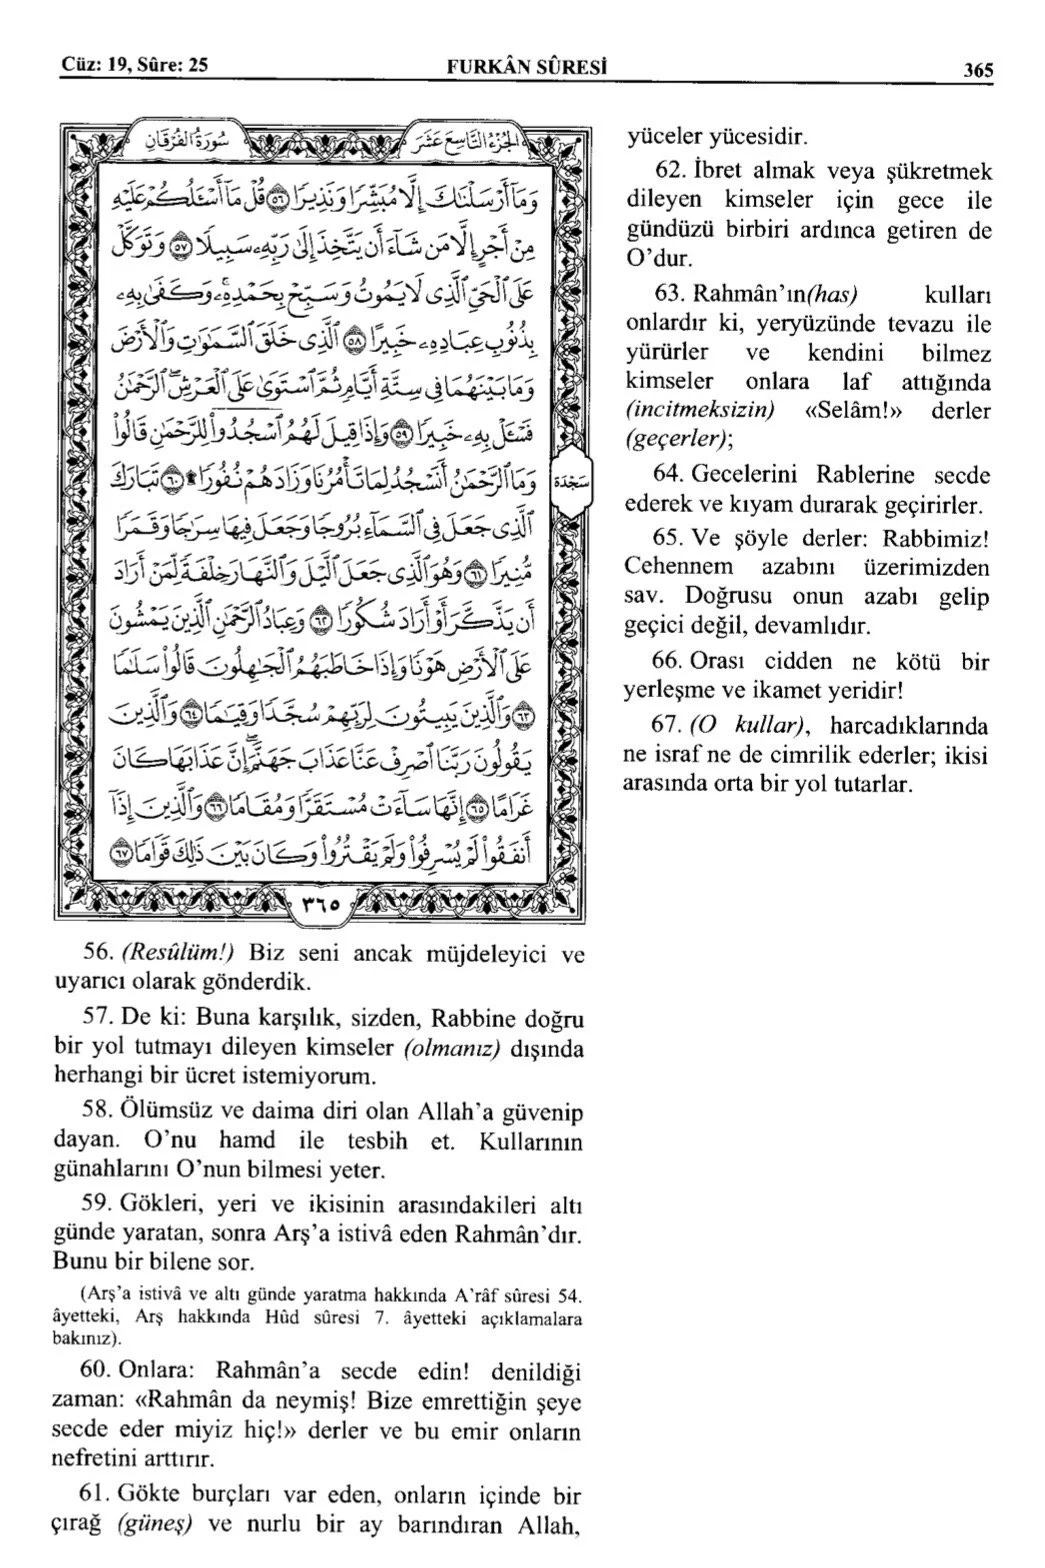 Cüz: 19, Sûre: 25
FURKÂN SÛRESİ
365
سُورَةُ الْفُرْقَانِ
الجُزْءُ التَّاسِعَ عَشَرَ
وَمَآ أَرْسَلْنَٰكَ إِلَّا مُبَشِّرًا وَنَذِيرًا ﴿٥٦﴾ قُلْ مَآ أَسْـَٔلُكُمْ عَلَيْهِ
مِنْ أَجْرٍ إِلَّا مَن شَآءَ أَن يَتَّخِذَ إِلَىٰ رَبِّهِۦ سَبِيلًا ﴿٥٧﴾ وَتَوَكَّلْ
عَلَى ٱلْحَىِّ ٱلَّذِى لَا يَمُوتُ وَسَبِّحْ بِحَمْدِهِۦ ۚ وَكَفَىٰ بِهِۦ
بِذُنُوبِ عِبَادِهِۦ خَبِيرًا ﴿٥٨﴾ ٱلَّذِى خَلَقَ ٱلسَّمَٰوَٰتِ وَٱلْأَرْضَ
وَمَا بَيْنَهُمَا فِى سِتَّةِ أَيَّامٍ ثُمَّ ٱسْتَوَىٰ عَلَى ٱلْعَرْشِ ۚ ٱلرَّحْمَٰنُ
فَسْـَٔلْ بِهِۦ خَبِيرًا ﴿٥٩﴾ وَإِذَا قِيلَ لَهُمُ ٱسْجُدُوا۟ لِلرَّحْمَٰنِ قَالُوا۟
وَمَا ٱلرَّحْمَٰنُ أَنَسْجُدُ لِمَا تَأْمُرُنَا وَزَادَهُمْ نُفُورًا ۩ ﴿٦٠﴾ تَبَارَكَ
سَجْدَة
ٱلَّذِى جَعَلَ فِى ٱلسَّمَآءِ بُرُوجًا وَجَعَلَ فِيهَا سِرَٰجًا وَقَمَرًا
مُّنِيرًا ﴿٦١﴾ وَهُوَ ٱلَّذِى جَعَلَ ٱلَّيْلَ وَٱلنَّهَارَ خِلْفَةً لِّمَنْ أَرَادَ
أَن يَذَّكَّرَ أَوْ أَرَادَ شُكُورًا ﴿٦٢﴾ وَعِبَادُ ٱلرَّحْمَٰنِ ٱلَّذِينَ يَمْشُونَ
عَلَى ٱلْأَرْضِ هَوْنًا وَإِذَا خَاطَبَهُمُ ٱلْجَٰهِلُونَ قَالُوا۟ سَلَٰمًا
﴿٦٣﴾ وَٱلَّذِينَ يَبِيتُونَ لِرَبِّهِمْ سُجَّدًا وَقِيَٰمًا ﴿٦٤﴾ وَٱلَّذِينَ
يَقُولُونَ رَبَّنَا ٱصْرِفْ عَنَّا عَذَابَ جَهَنَّمَ ۖ إِنَّ عَذَابَهَا كَانَ
غَرَامًا ﴿٦٥﴾ إِنَّهَا سَآءَتْ مُسْتَقَرًّا وَمُقَامًا ﴿٦٦﴾ وَٱلَّذِينَ إِذَآ
أَنفَقُوا۟ لَمْ يُسْرِفُوا۟ وَلَمْ يَقْتُرُوا۟ وَكَانَ بَيْنَ ذَٰلِكَ قَوَامًا ﴿٦٧﴾
٣٦٥
56. (Resûlüm!) Biz seni ancak müjdeleyici ve
uyarıcı olarak gönderdik.
57. De ki: Buna karşılık, sizden, Rabbine doğru
bir yol tutmayı dileyen kimseler (olmanız) dışında
herhangi bir ücret istemiyorum.
58. Ölümsüz ve daima diri olan Allah'a güvenip
dayan. O'nu hamd ile tesbih et. Kullarının
günahlarını O'nun bilmesi yeter.
59. Gökleri, yeri ve ikisinin arasındakileri altı
günde yaratan, sonra Arş'a istivâ eden Rahmân'dır.
Bunu bir bilene sor.
(Arş'a istivâ ve altı günde yaratma hakkında A'râf sûresi 54.
âyetteki, Arş hakkında Hûd sûresi 7. âyetteki açıklamalara
bakınız).
60. Onlara: Rahmân'a secde edin! denildiği
zaman: «Rahmân da neymiş! Bize emrettiğin şeye
secde eder miyiz hiç!» derler ve bu emir onların
nefretini arttırır.
61. Gökte burçları var eden, onların içinde bir
çırağ (güneş) ve nurlu bir ay barındıran Allah,
yüceler yücesidir.
62. İbret almak veya şükretmek
dileyen kimseler için gece ile
gündüzü birbiri ardınca getiren de
O'dur.
63. Rahmân'ın(has) kulları
onlardır ki, yeryüzünde tevazu ile
yürürler ve kendini bilmez
kimseler onlara laf attığında
(incitmeksizin) «Selâm!» derler
(geçerler);
64. Gecelerini Rablerine secde
ederek ve kıyam durarak geçirirler.
65. Ve şöyle derler: Rabbimiz!
Cehennem azabını üzerimizden
sav. Doğrusu onun azabı gelip
geçici değil, devamlıdır.
66. Orası cidden ne kötü bir
yerleşme ve ikamet yeridir!
67. (O kullar), harcadıklarında
ne israf ne de cimrilik ederler; ikisi
arasında orta bir yol tutarlar.